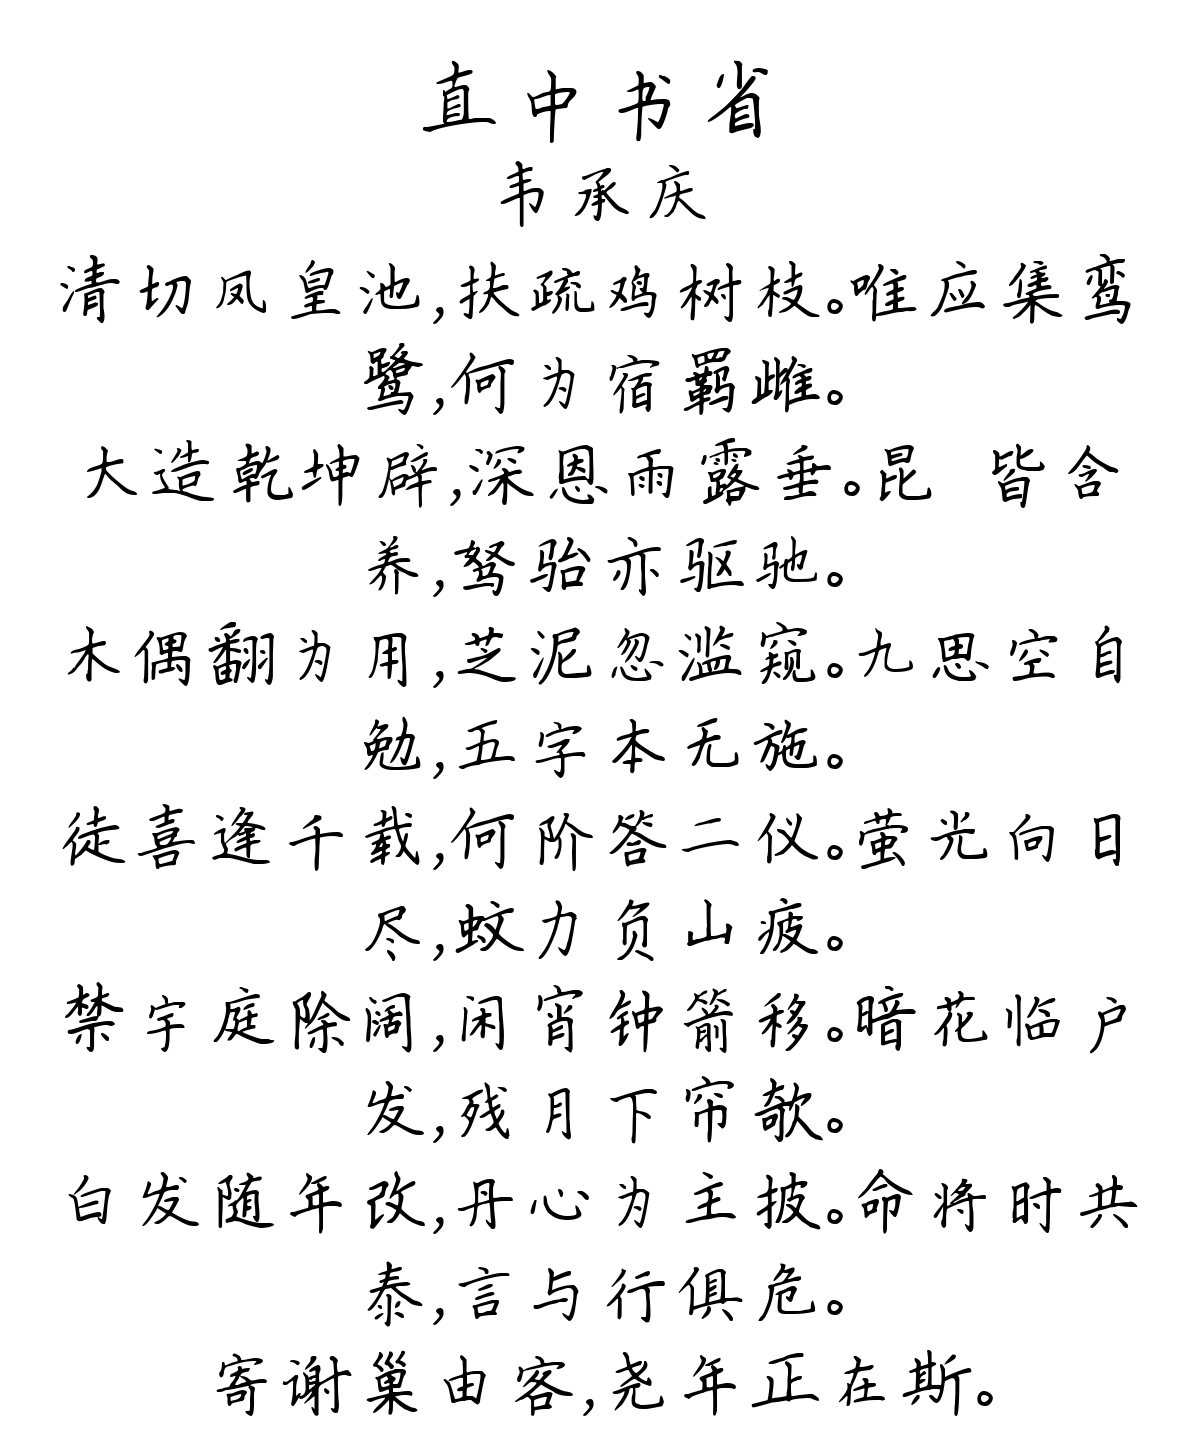 直中书省
韦承庆
清切凤皇池,扶疏鸡树枝。唯应集鸾
鹭,何为宿羁雌。
大造乾坤辟,深恩雨露垂。昆 皆含
养,驽骀亦驱驰。
木偶翻为用,芝泥忽滥窥。九思空自
勉,五字本无施。
徒喜逢千载,何阶答二仪。萤光向日
尽,蚊力负山疲。
禁宇庭除阔,闲宵钟箭移。暗花临户
发,残月下帘欹。
白发随年改,丹心为主披。命将时共
泰,言与行俱危。
寄谢巢由客,尧年正在斯。